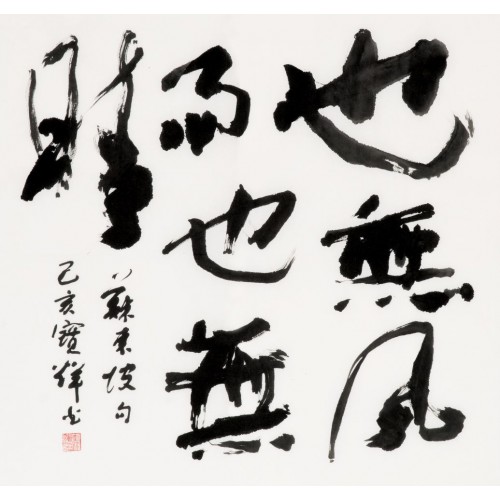 也無風
雨也無
晴
蘇東坡句
己亥寶輝书